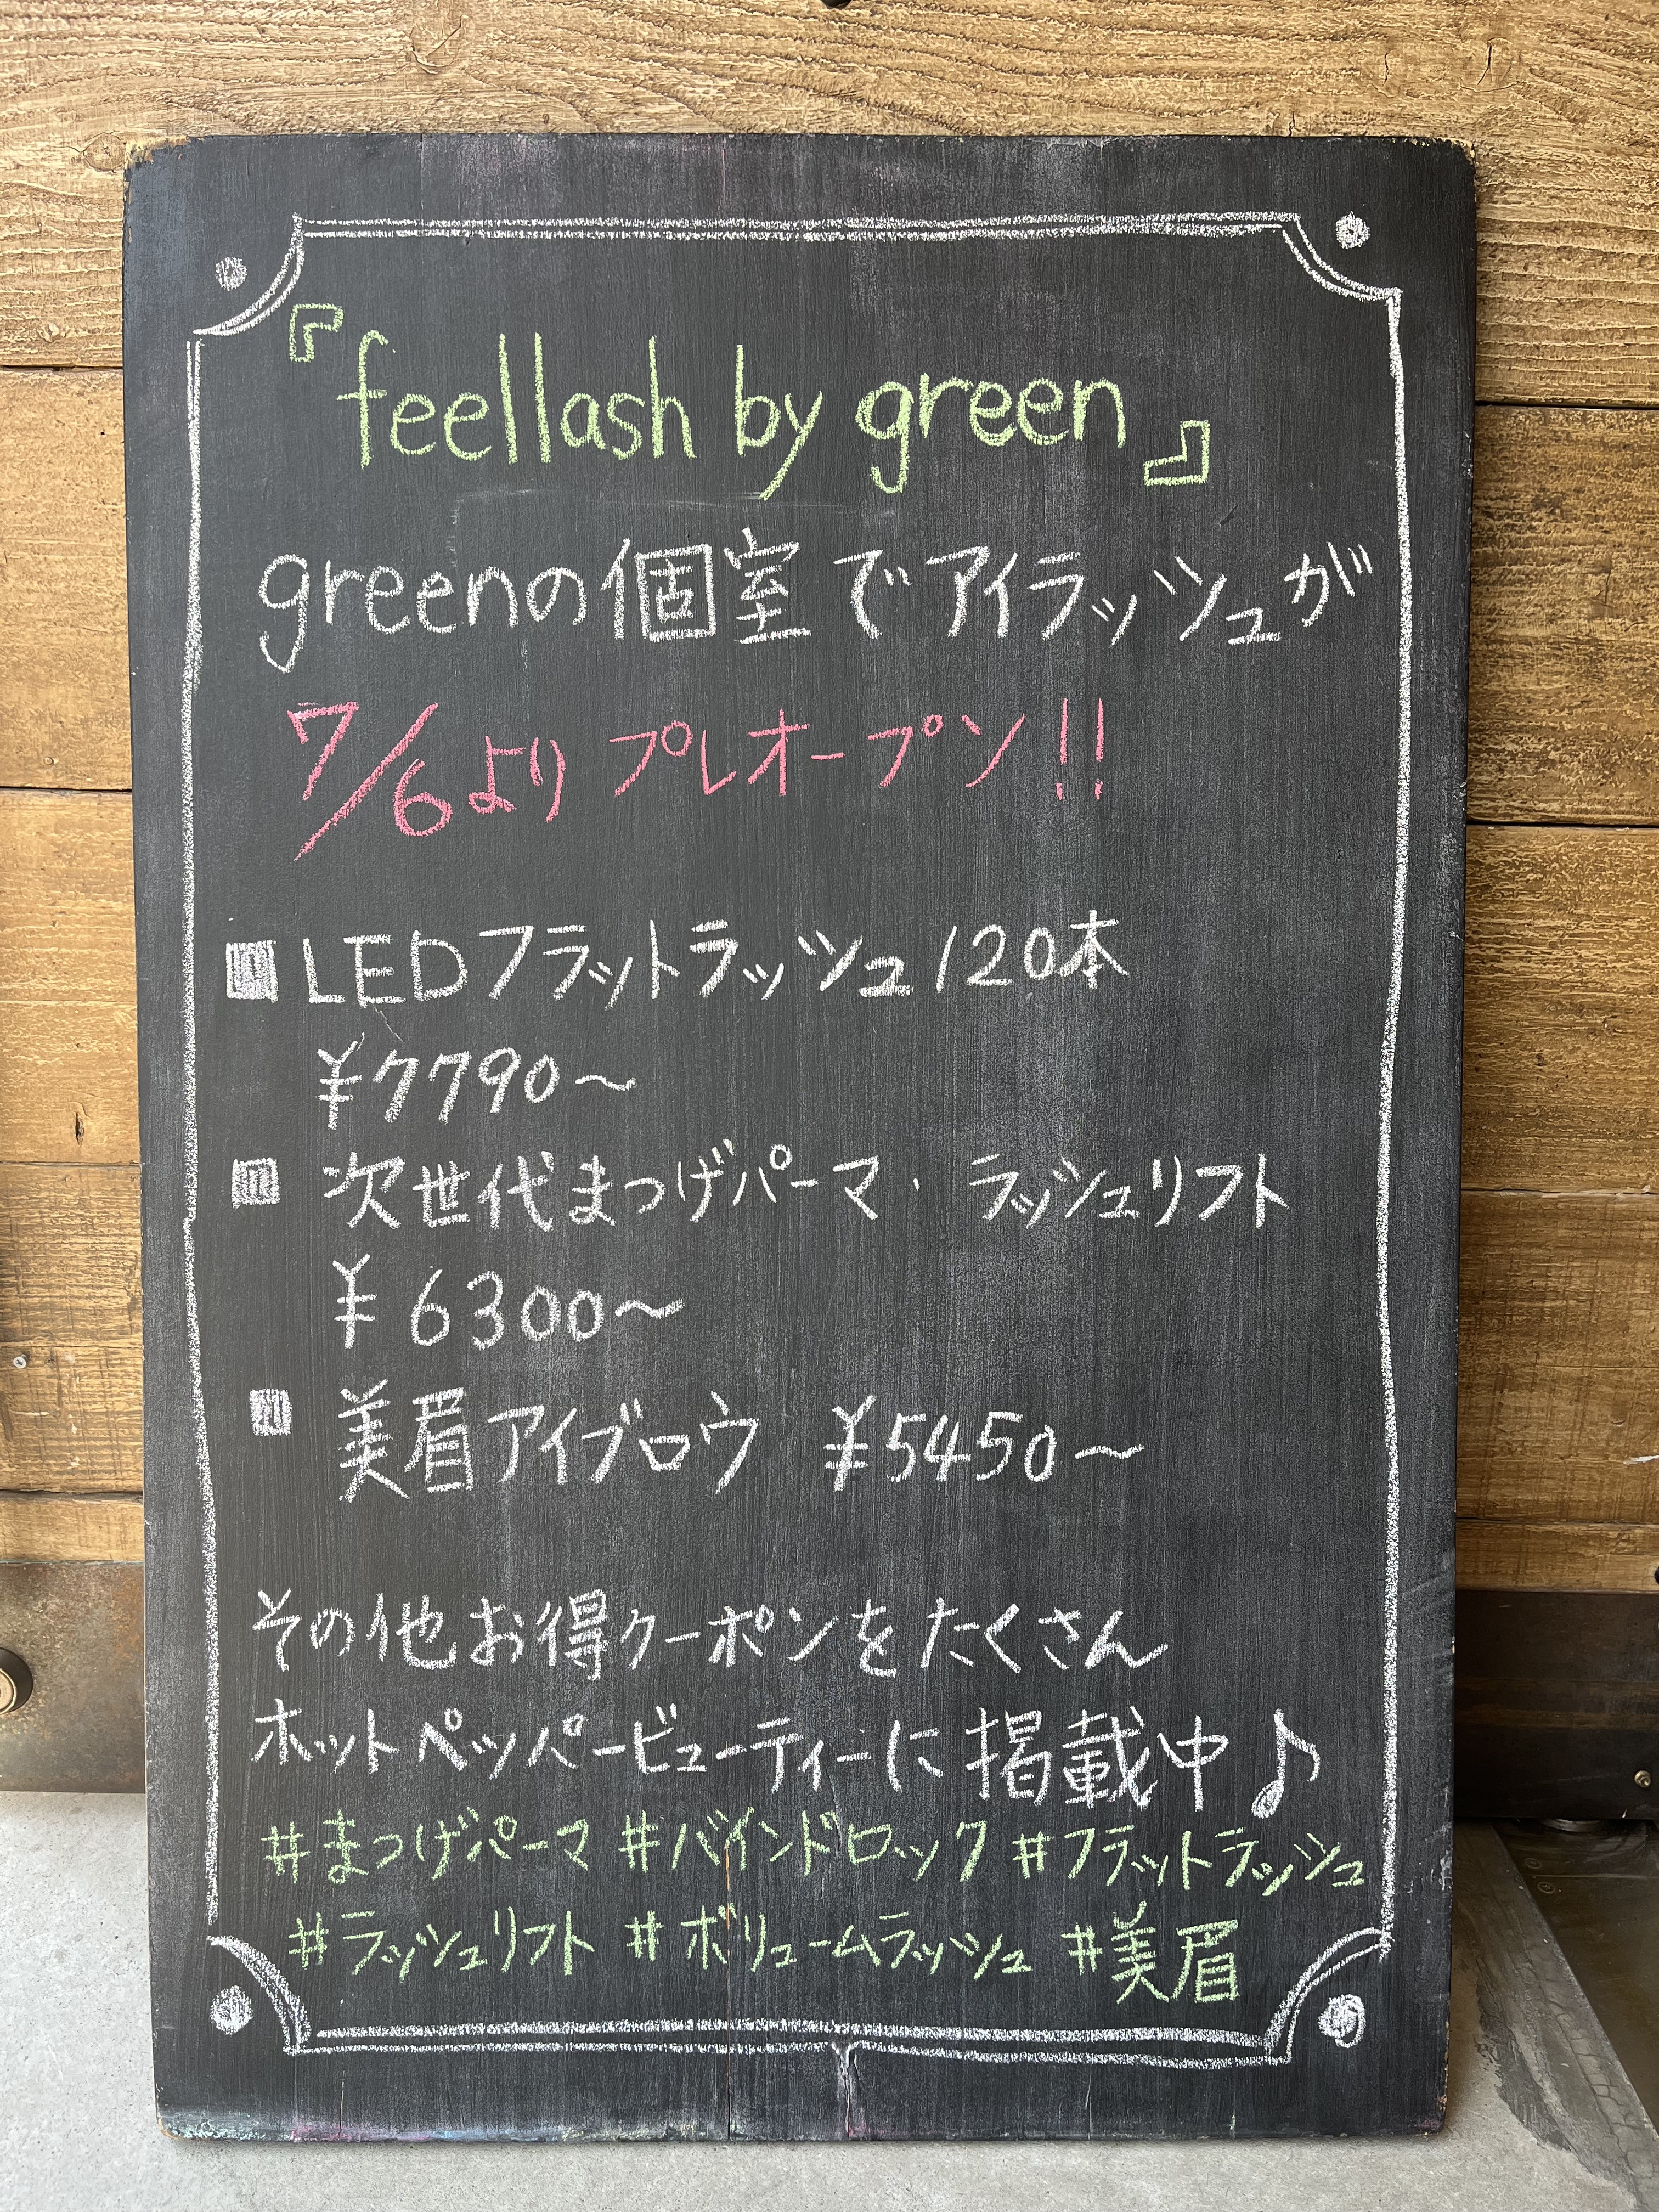 『feellash by green』
greenの個室でアイラッシュが
7/6よりプレオープン!!
■ LEDフラットラッシュ120本
¥7790〜
■ 次世代まつげパーマ・ラッシュリフト
¥6300〜
■ 美眉アイブロウ ¥5450〜
その他お得クーポンをたくさん
ホットペッパービューティーに掲載中♪
#まつげパーマ #バインドロック #フラットラッシュ
#ラッシュリフト #ボリュームラッシュ #美眉